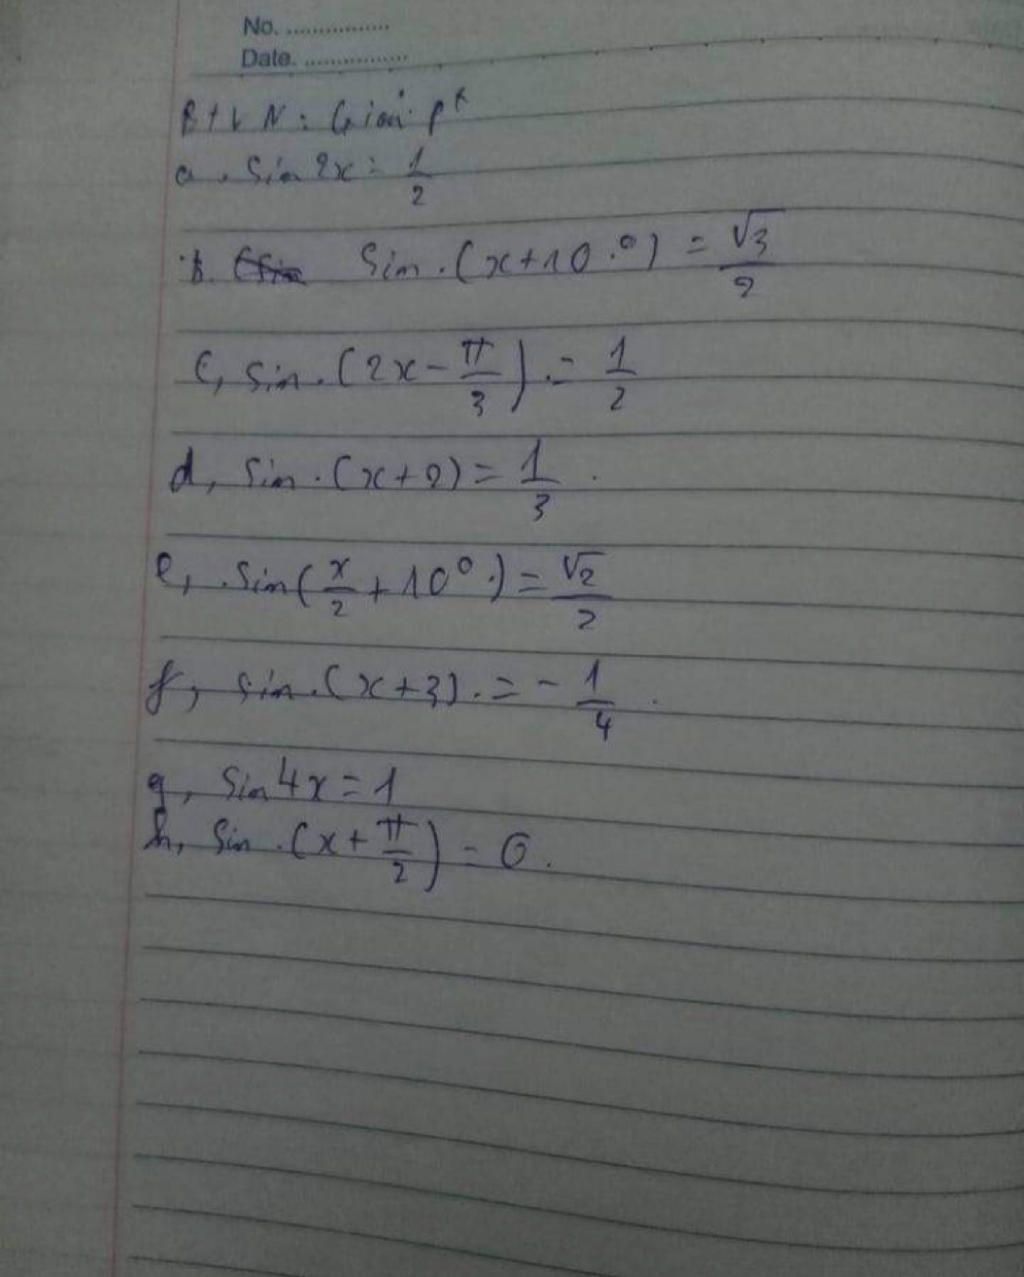 No. ................
Date. ................
BTVN: Giải pt
a. Sin 2x = 1/2
b. Sin.(x+10.°) = √3/2
c, sin.(2x - π/3) = 1/2
d, Sin.(x+2) = 1/3.
e, .Sin(x/2 + 10°.) = √2/2
f, sin.(x+3). = - 1/4.
g, Sin 4x = 1
h, Sin.(x + π/2) = 0.